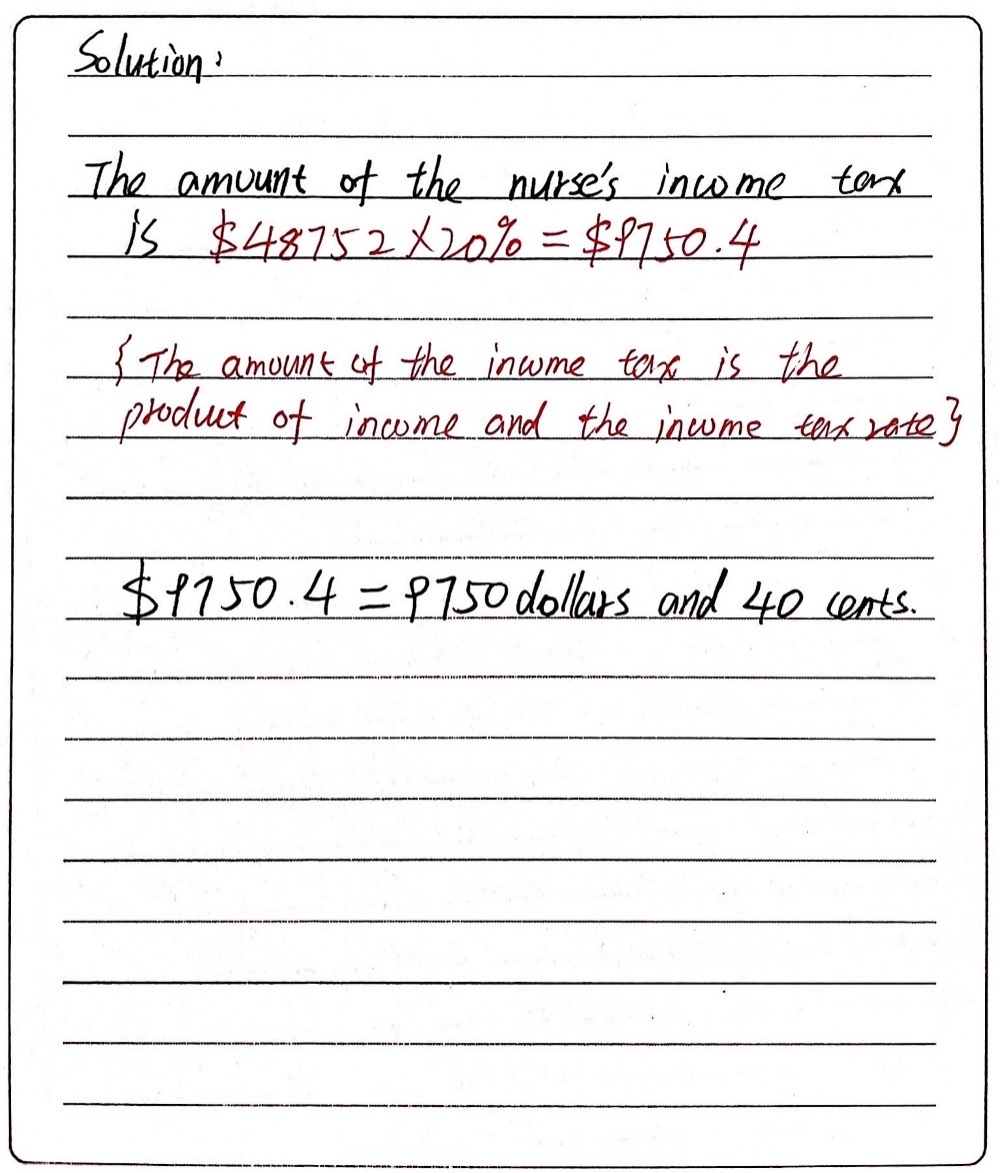 Solution:
The amount of the nurse's income tax
is $48752×20% = $9750.4
{The amount of the income tax is the
product of income and the income tax rate}
$9750.4 = 9750 dollars and 40 cents.